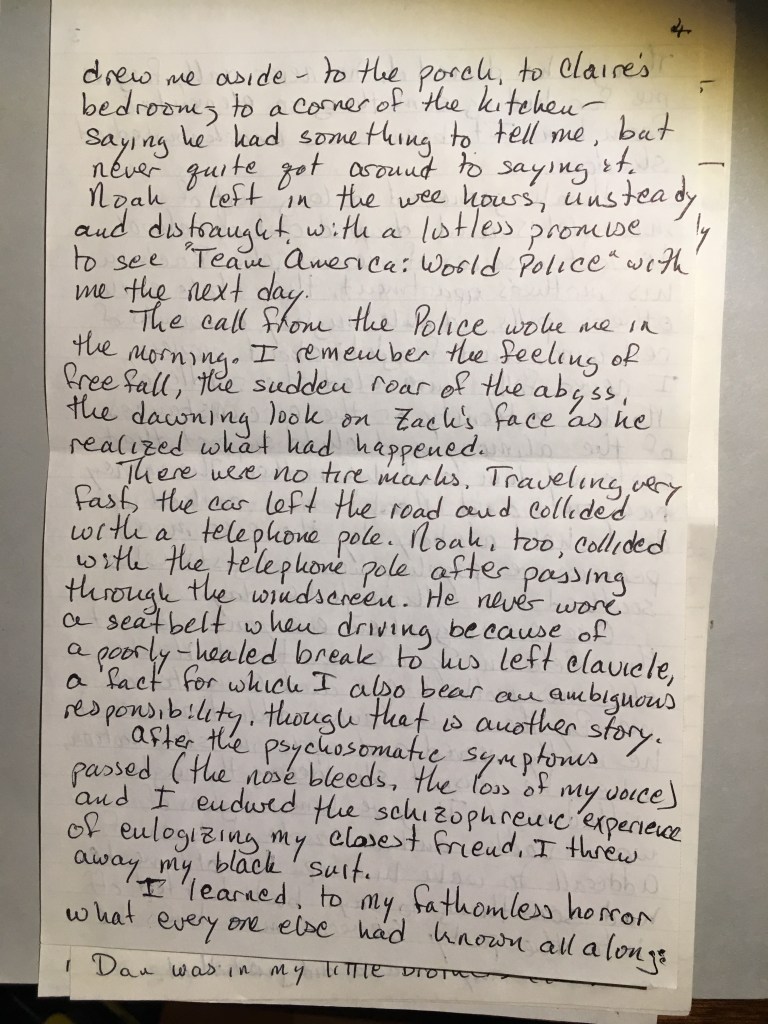 4
drew me aside - to the porch, to Claire's
bedroom, to a corner of the kitchen -
saying he had something to tell me, but
never quite got around to saying it.
Noah left in the wee hours, unsteady
and distraught, with a listless promise
to see "Team America: World Police" with
me the next day.
The call from the Police woke me in
the morning. I remember the feeling of
free fall, the sudden roar of the abyss,
the dawning look on Zach's face as he
realized what had happened.
There were no tire marks. Traveling very
fast, the car left the road and collided
with a telephone pole. Noah, too, collided
with the telephone pole after passing
through the windscreen. He never wore
a seatbelt when driving because of
a poorly-healed break to his left clavicle,
a fact for which I also bear an ambiguous
responsibility, though that is another story.
After the psychosomatic symptoms
passed (the nose bleeds, the loss of my voice)
and I endured the schizophrenic experience
of eulogizing my closest friend, I threw
away my black suit.
I learned, to my fathomless horror
what every one else had known all along:
Dan was in my little